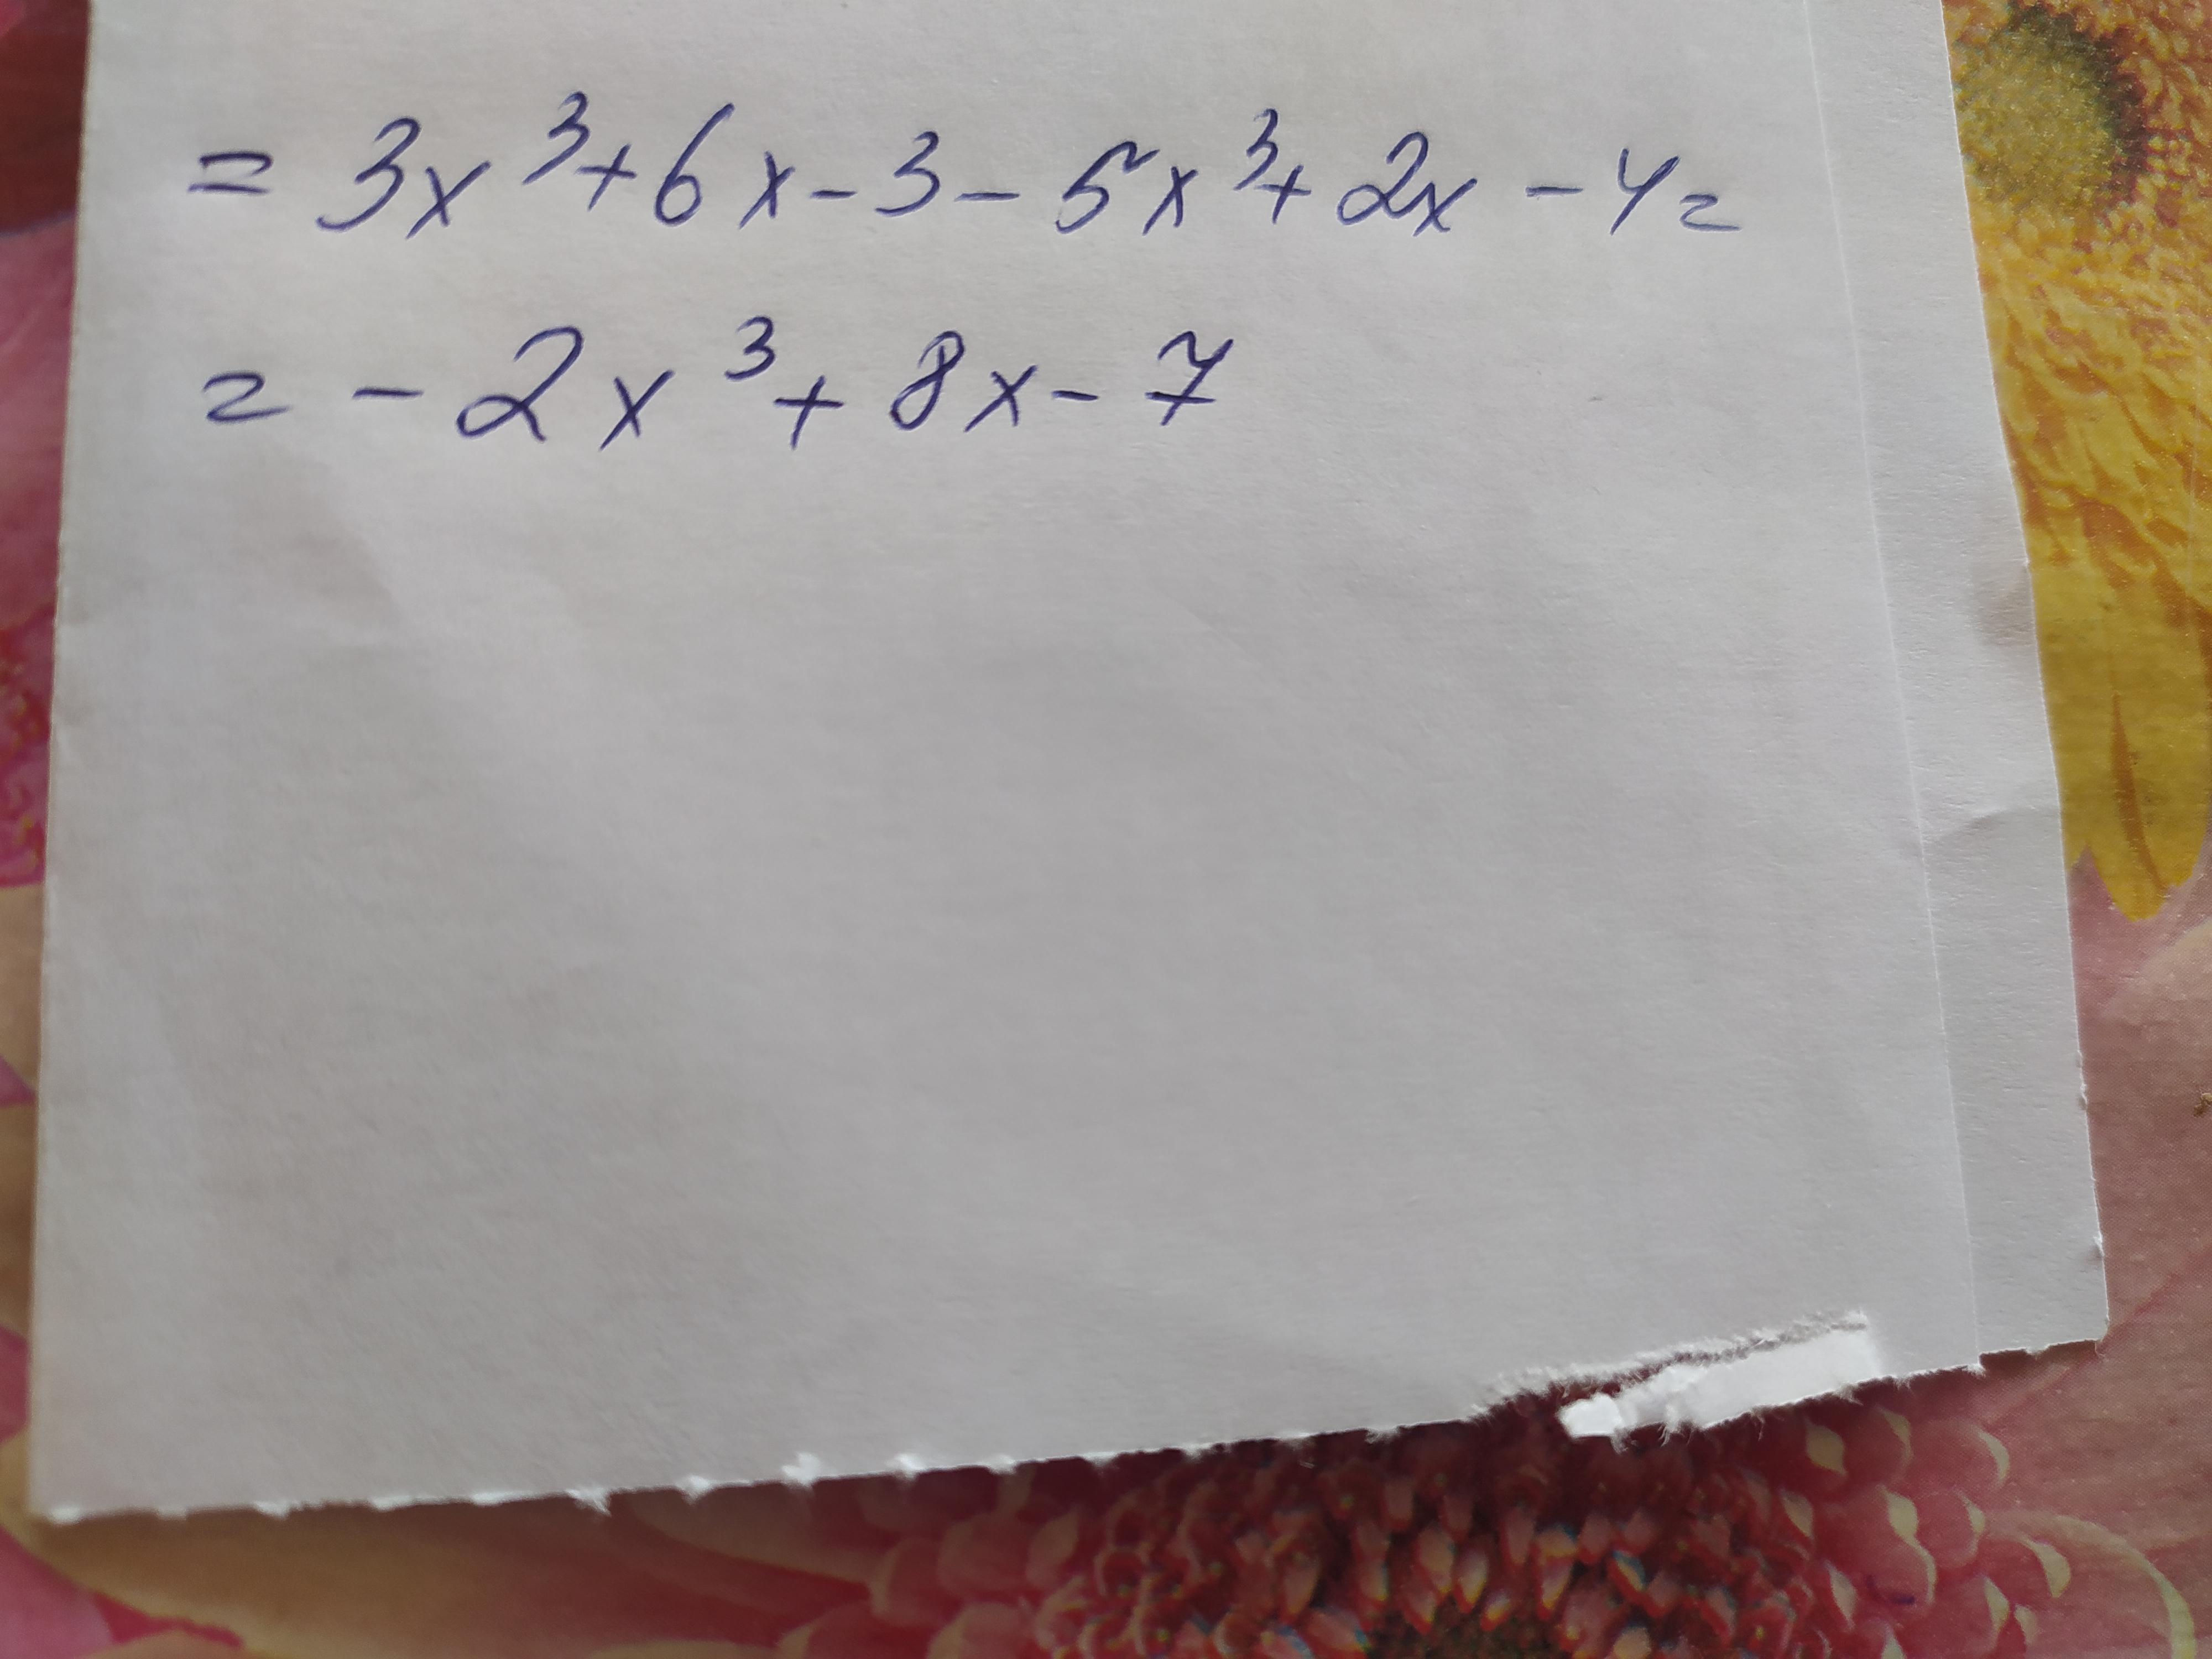 = 3x³+6x-3-5x³+2x-4=
= -2x³+8x-7